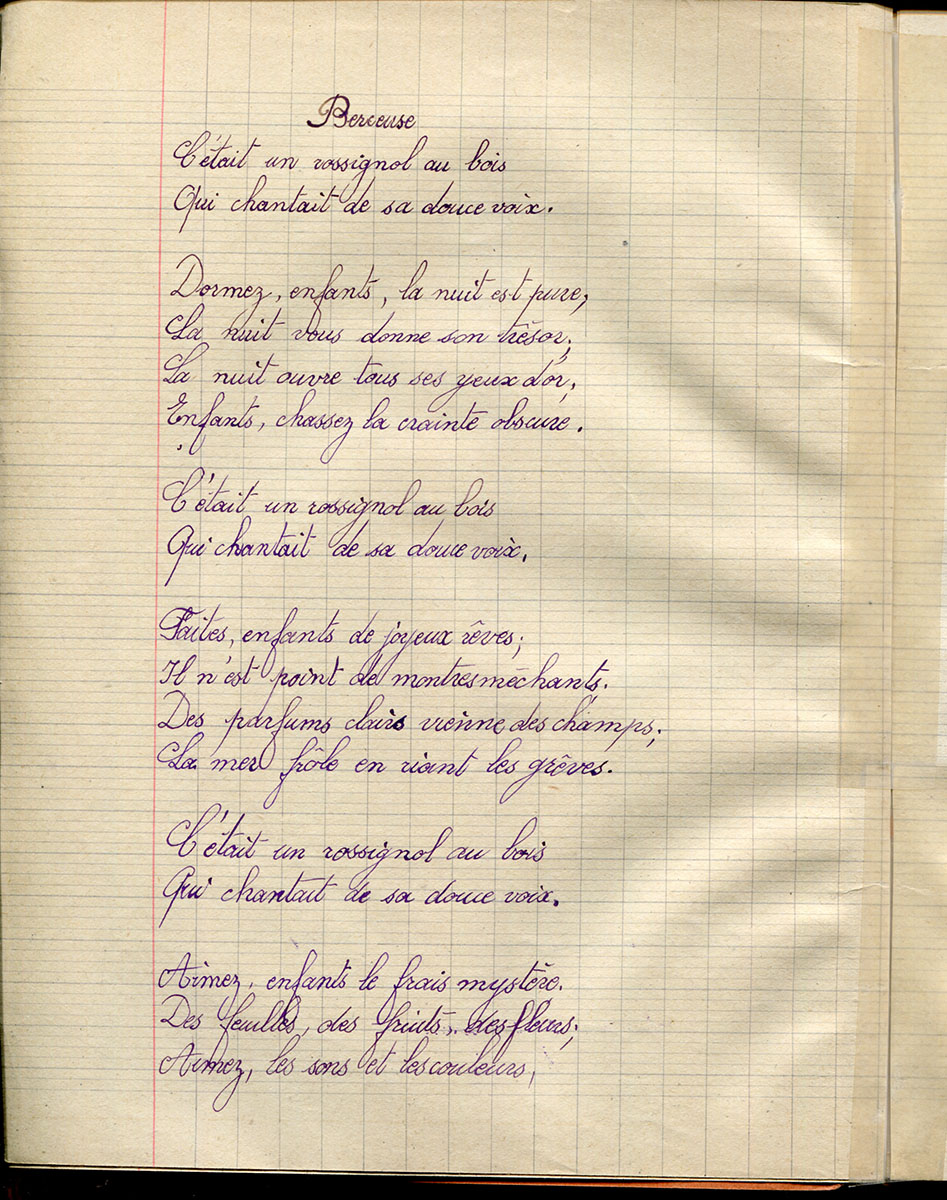 Berceuse
C'était un rossignol au bois
Qui chantait de sa douce voix.
Dormez, enfants, la nuit est pure,
La nuit vous donne son trésor;
La nuit ouvre tous ses yeux d'or,
Enfants, chassez la crainte obscure.
C'était un rossignol au bois
Qui chantait de sa douce voix.
Faites, enfants de joyeux rêves;
Il n'est point de montres méchants.
Des parfums clairs vienne des champs;
La mer frôle en riant les grêves.
C'était un rossignol au bois
Qui chantait de sa douce voix.
Aimez, enfants le frais mystère.
Des feuilles, des fruits, des fleurs;
Aimez, les sons et les couleurs,